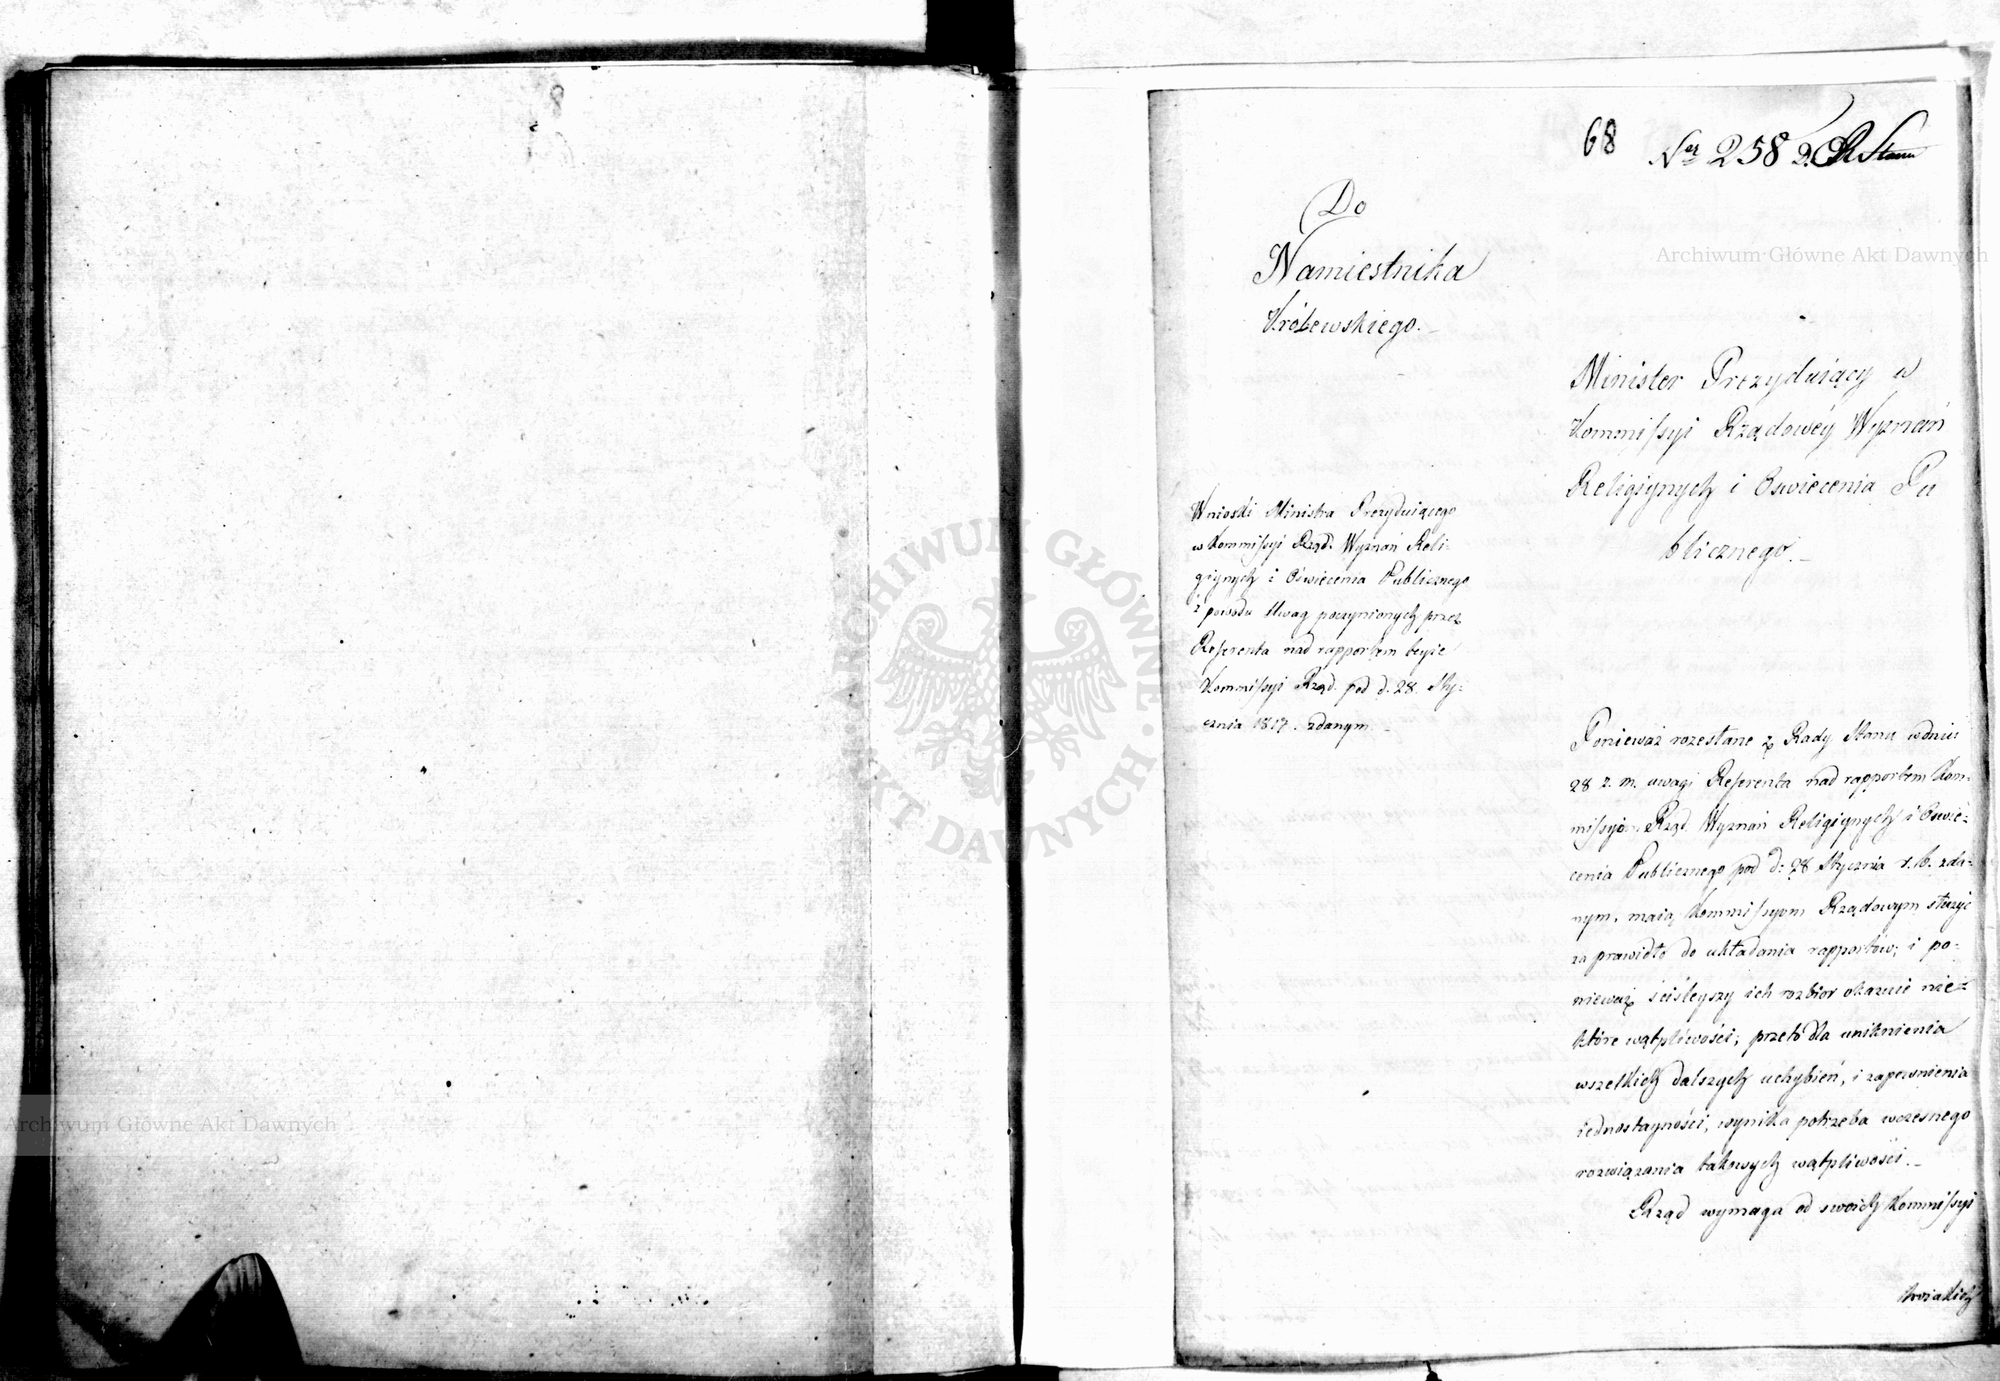 68
Nr 258 D. R Stanu
Do
Namiestnika
Królewskiego.
Minister Prezyduiący w
Kommissyi Rządowéy Wyznań
Religiynych i Oświecenia Pu
blicznego.
Wnioski Ministra Prezyduiącego
w Kommissyi Rząd. Wyznań Reli-
giynych i Oświecenia Publicznego
z powodu Uwag poczynionych przez
Referenta nad rapportem teyże
Kommissyi Rząd. pod d. 28. Sty-
cznia 1817. zdanym
Ponieważ rozesłane z Rady Stanu w dniu
28 z. m. uwagi Referenta nad rapportem Kom-
missyi Rząd. Wyznań Religiynych i Oświe-
cenia Publicznego pod d: 28 Stycznia r. b. zda-
nym, maią Kommissyom Rządowym służyć
za prawidło do układania rapportów; i po-
nieważ ściśleyszy ich rozbior okazuie nie-
które wątpliwości; przeto dla uniknienia
wszelkich dalszych uchybień, i zapewnienia
iednostayności, wynika potrzeba wczesnego
rozwiązania takowych wątpliwości.
Rząd wymaga od swoich Kommissyi
troiakich
Archiwum Główne Akt Dawnych
Archiwum Główne Akt Dawnych
ARCHIWUM GŁÓWNE AKT DAWNYCH